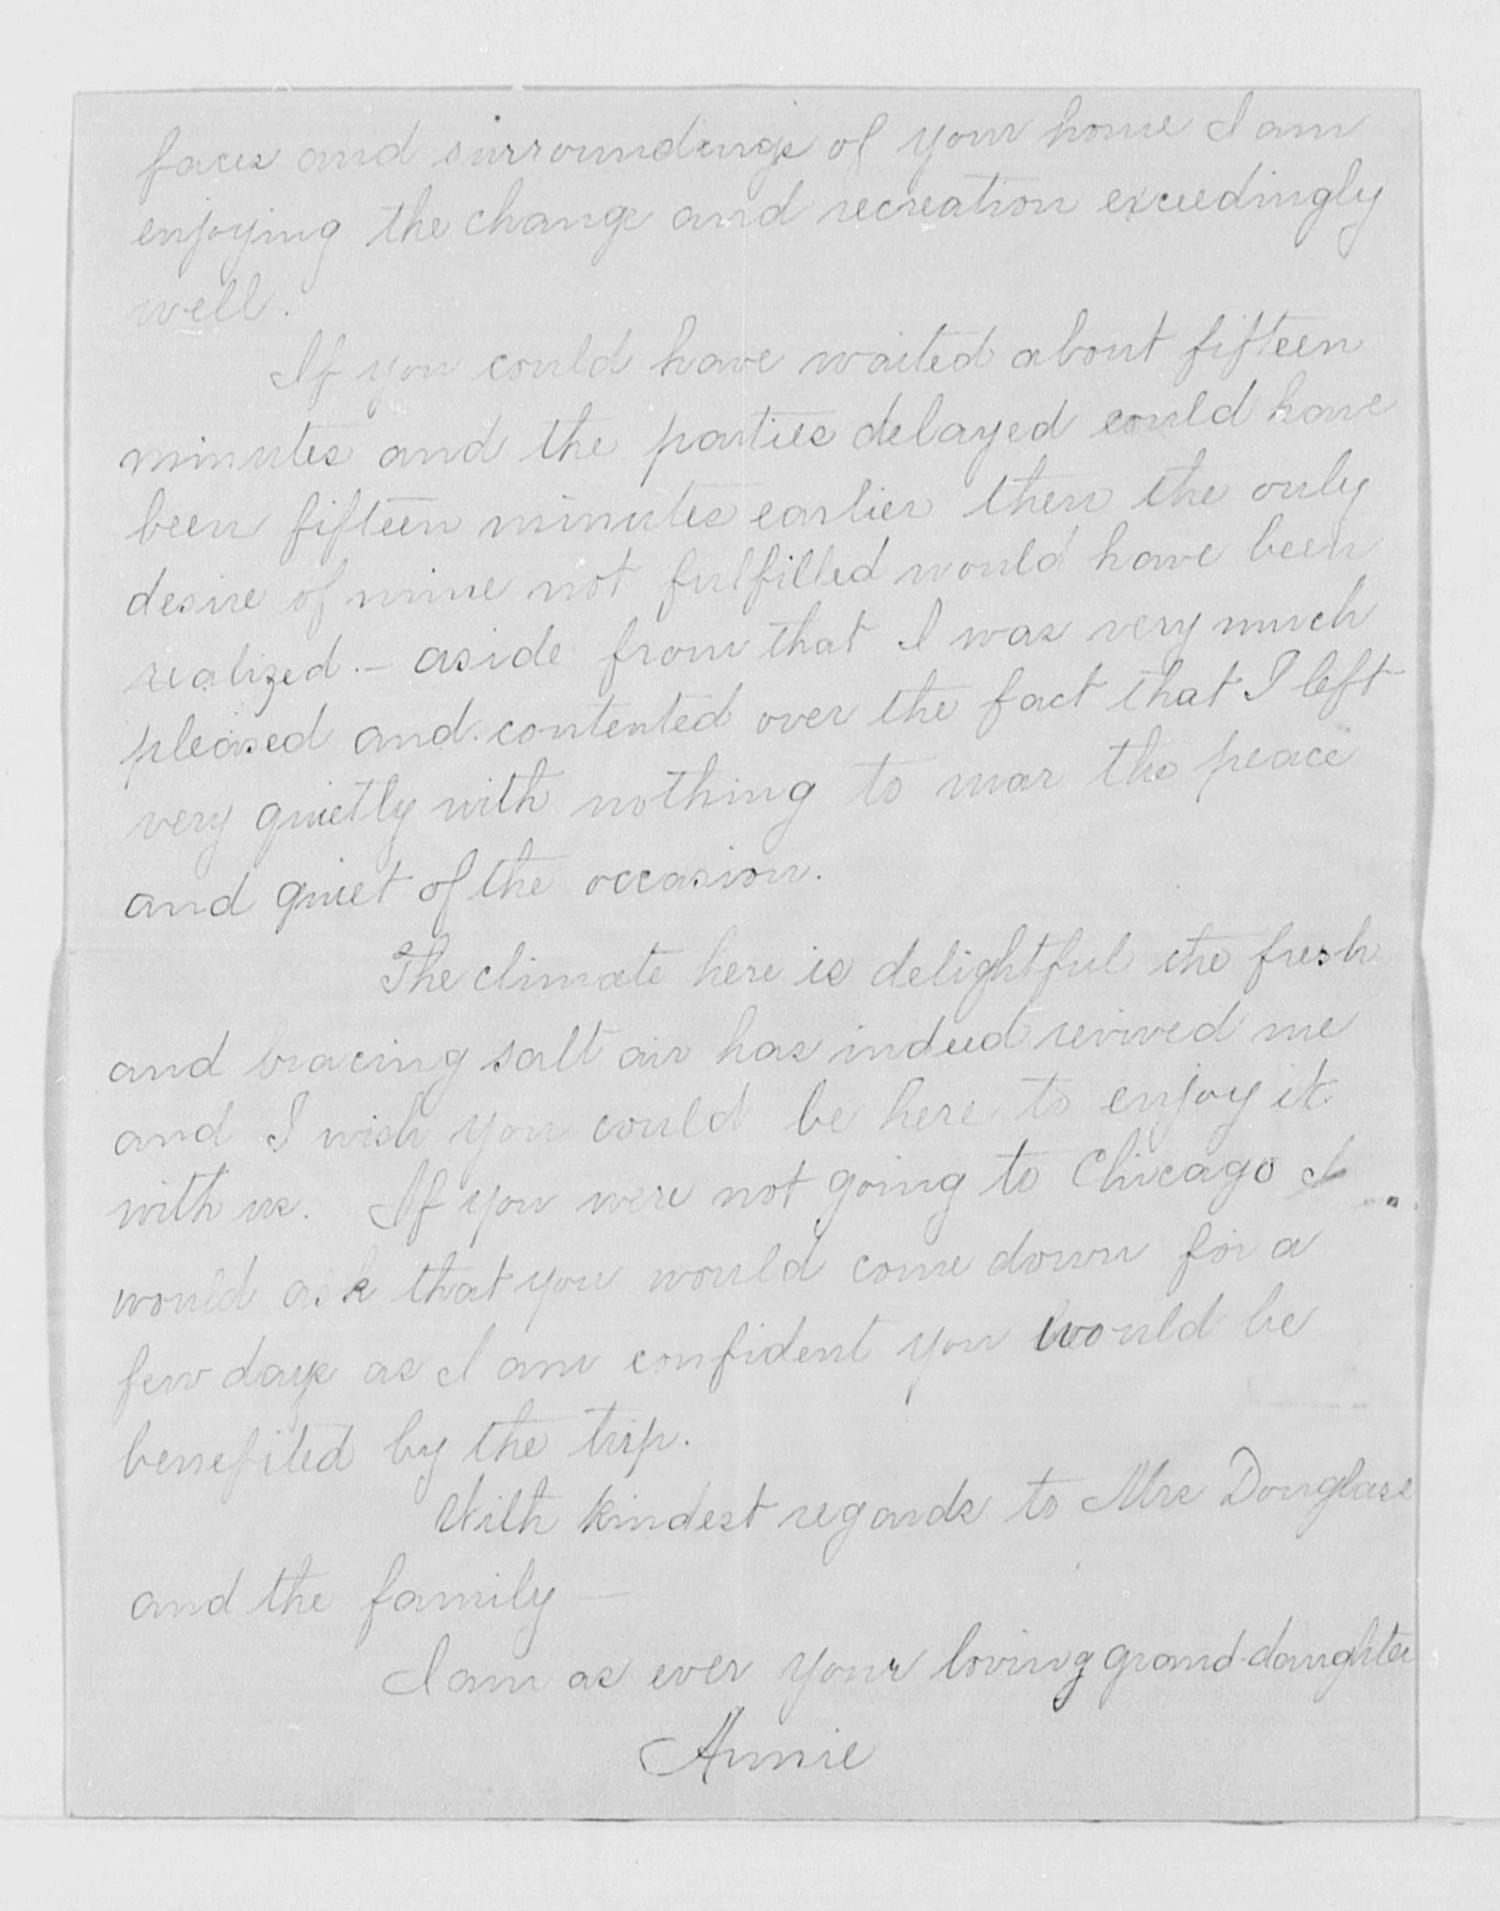 faces and surroundings of your home I am
enjoying the change and recreation exceedingly
well.
If you could have waited about fifteen
minutes and the parties delayed could have
been fifteen minutes earlier then the only
desire of mine not fulfilled would have been
realized. — aside from that I was very much
pleased and contented over the fact that I left
very quietly with nothing to mar the peace
and quiet of the occasion.
The climate here is delightful the fresh
and bracing salt air has indeed revived me
and I wish you could be here to enjoy it
with us. If you were not going to Chicago I
would ask that you would come down for a
few days as I am confident you would be
benefited by the trip.
With kindest regards to Mrs Douglass
and the family —
I am as ever your loving grand-daughter
Annie